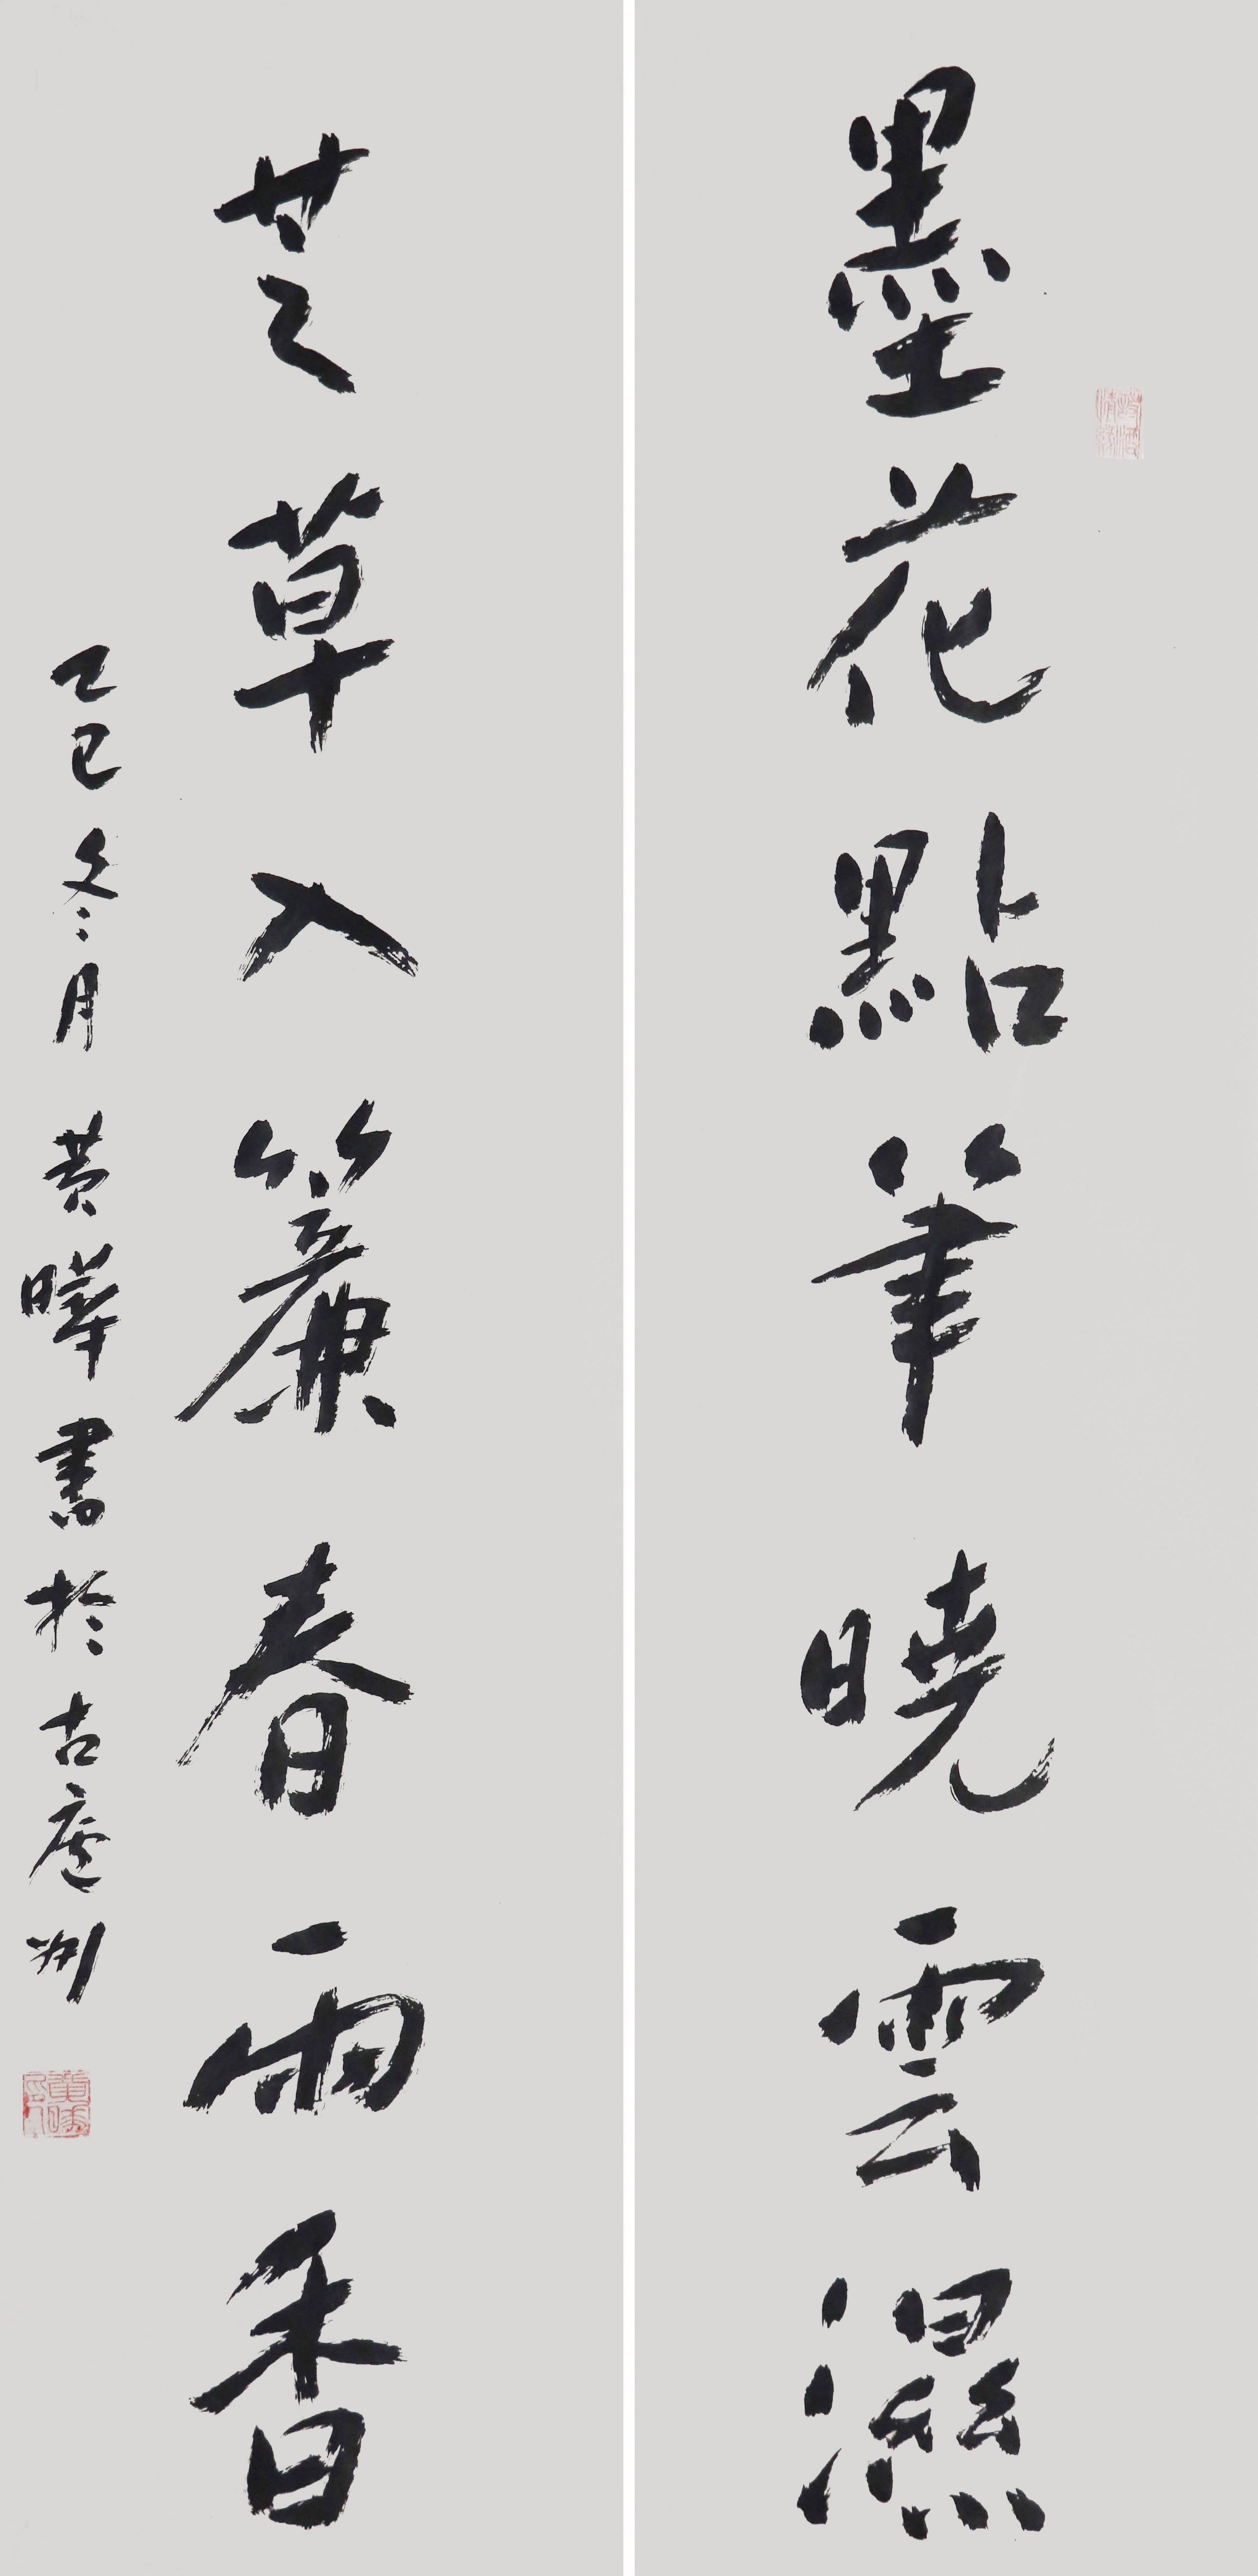 墨花點筆曉雲濕
芝草入簾春雨香
乙巳冬月黄曄書於古廬州